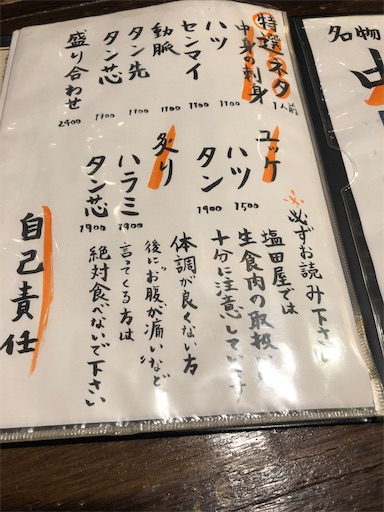 特選ネタ
1人前
中身の刺身
ハツ 1100
センマイ 1100
動脈 1100
タン先 1100
タン芯 1900
盛り合わせ 2400
ユッケ
ハツ 1500
タン 1900
炙り
ハラミ 1900
タン芯 1900
※必ずお読み下さい
塩田屋では
生食肉の取扱い
十分に注意しています
体調が良くない方
後にお腹が痛いなど
言ってくる方は
絶対食べないで下さい
自己責任
名物